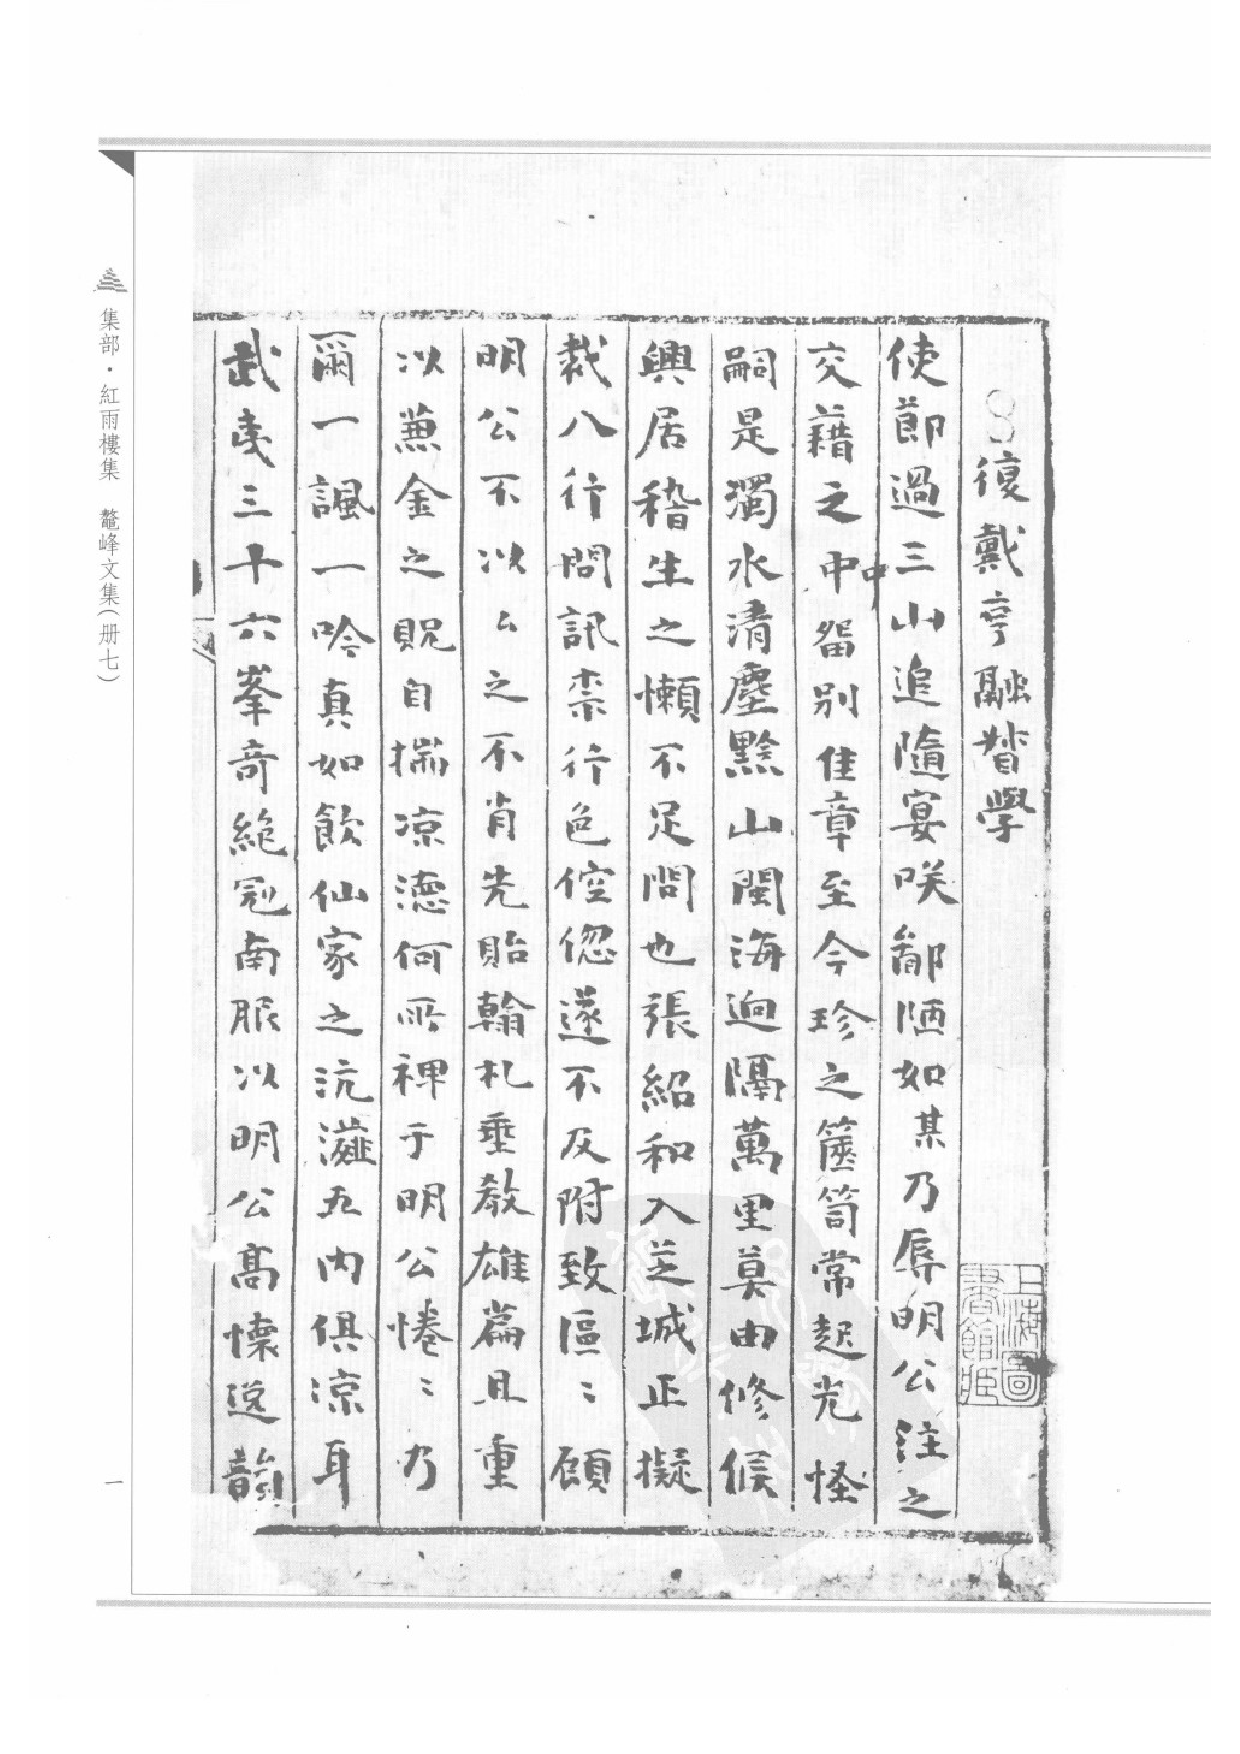 復戴亨融督學
使節過三山追隨宴咲鄙陋如某乃辱明公注之
交藉之中中畱別佳章至今珍之篋笥常起光怪
嗣是濁水清塵黔山閩海逈隔萬里莫由修候
興居稽生之懶不足問也張紹和入芝城正擬
裁八行問訊柰行色倥偬遂不及附致區〻顧
明公不以厶之不肖先貽翰札垂教雄篇且重
以蒹金之貺自揣凉德何所裨于明公惓〻乃
爾一諷一吟真如飲仙家之沆瀣五內俱涼耳
武夷三十六峯奇絶冠南服以明公高懷逸韵
上海圖書館藏
集部·紅雨樓集 鼇峰文集(册七)
一